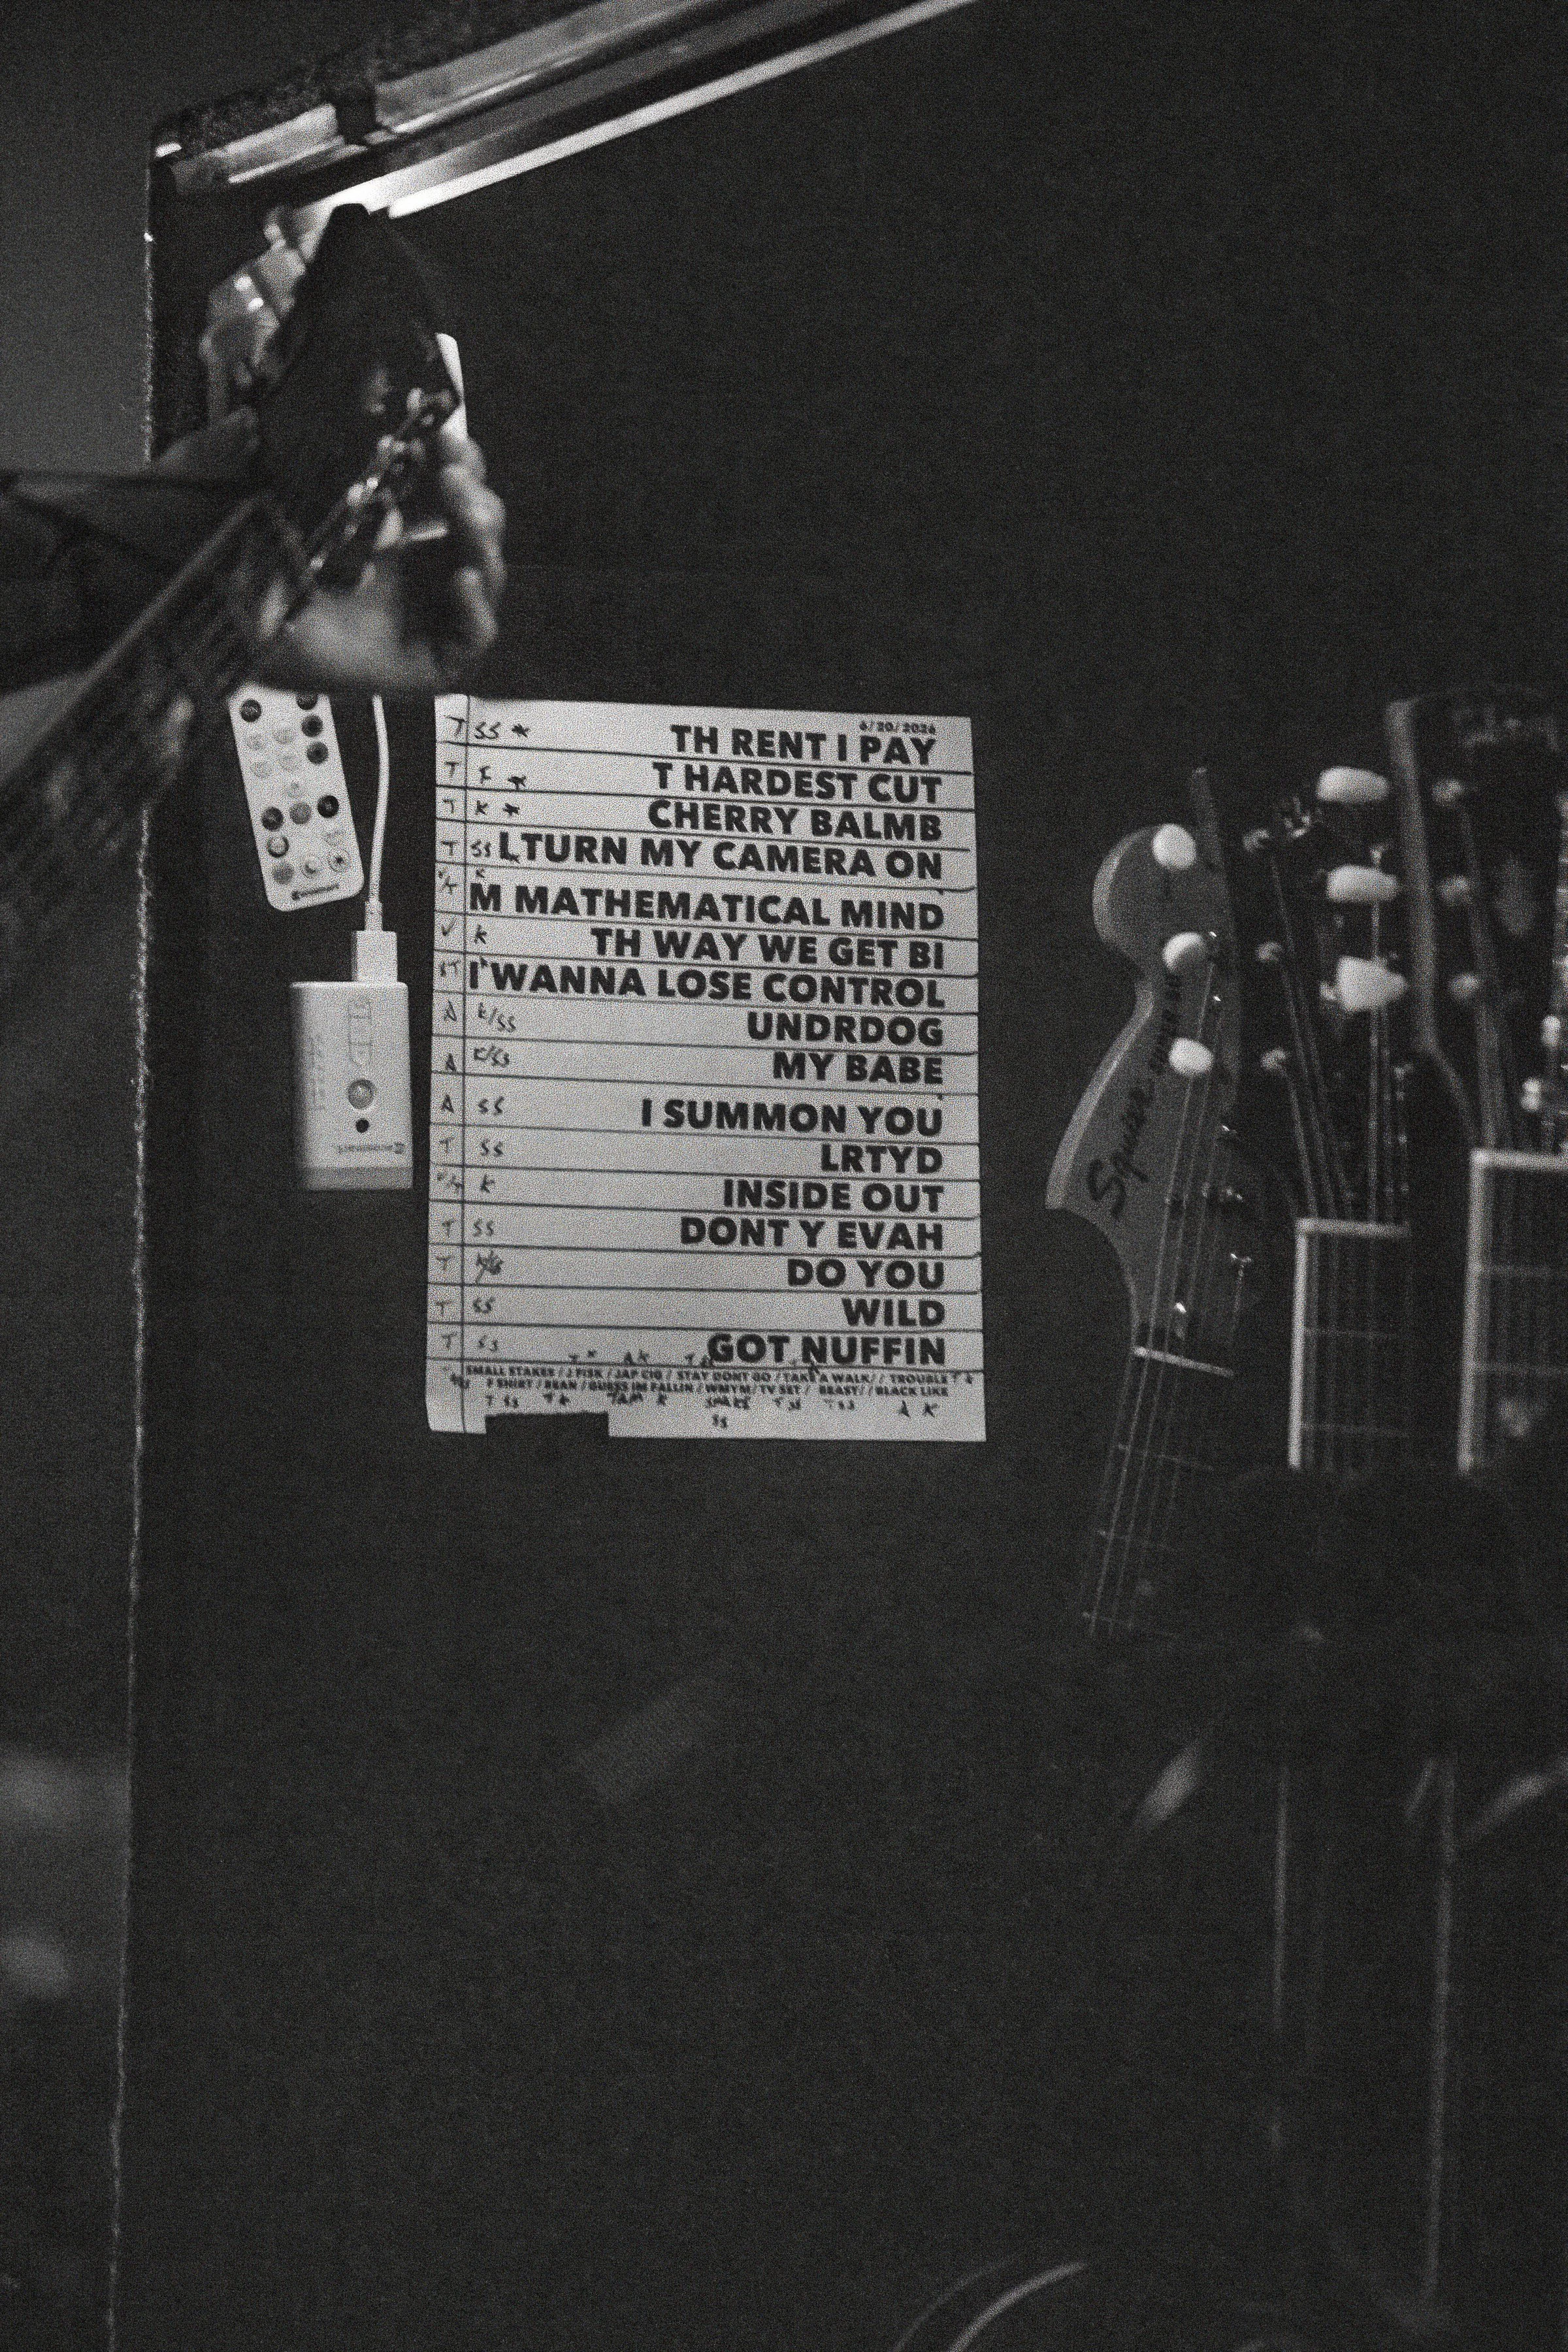 6/20/2026
T SS * TH RENT I PAY
T * T HARDEST CUT
T K * CHERRY BALMB
T SS I TURN MY CAMERA ON
K M MATHEMATICAL MIND
K TH WAY WE GET BI
I WANNA LOSE CONTROL
A K/SS UNDRDOG
A K/SS MY BABE
A SS I SUMMON YOU
T SS LRTYD
K INSIDE OUT
T SS DONT Y EVAH
T DO YOU
T SS WILD
T SS GOT NUFFIN
SMALL STAKES / J FISK / JAP CIG / STAY DONT GO / TAKE A WALK / / TROUBLE
F SHIRT / BEAN / GUESS IM FALLIN / WMYM / TV SET / BEAST / / BLACK LIKE
T SS T K K T SS T SS A K
SS
Squier